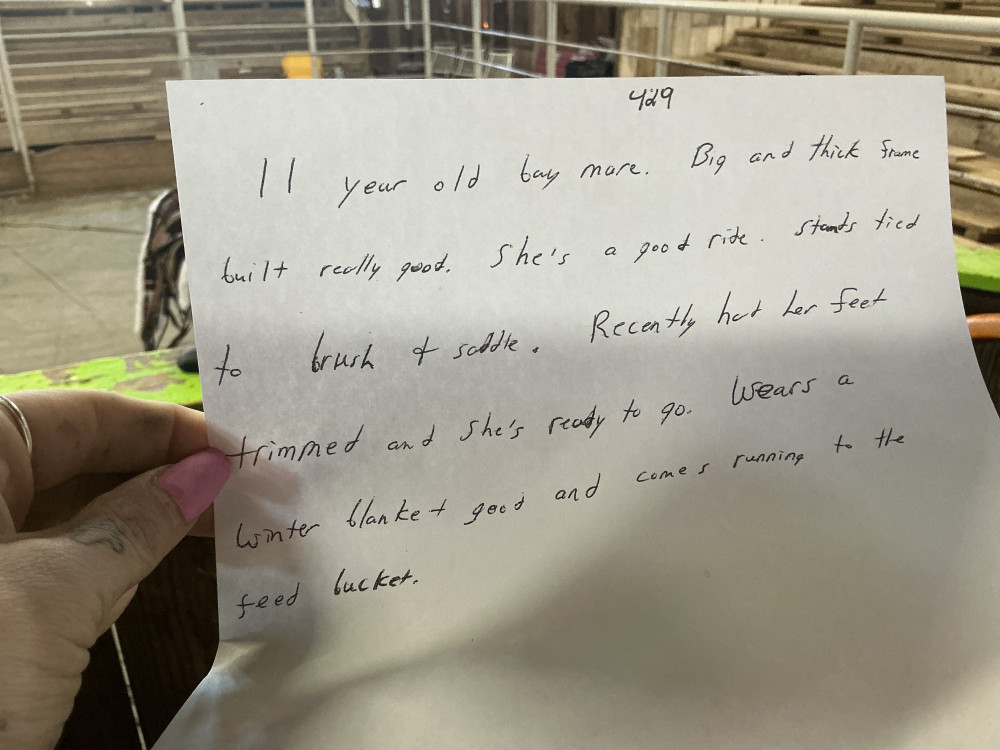 429
11 year old bay mare. Big and thick frame
built really good. She's a good ride. Stands tied
to brush & saddle. Recently had her feet
trimmed and she's ready to go. Wears a
winter blanket good and comes running to the
feed bucket.